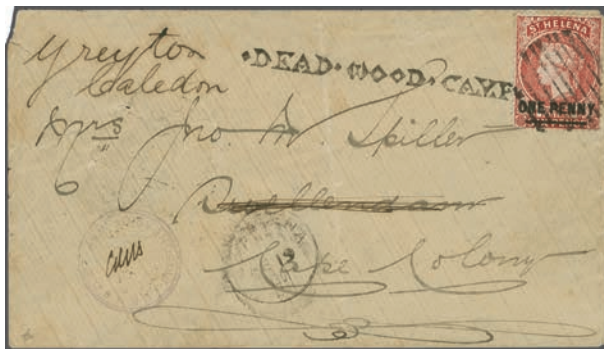 Greyton
Caledon
·DEAD·WOOD·CAMP·
ST HELENA
ONE PENNY
Mrs Jno. W. Spiller
Swellendam
Cape Colony
19